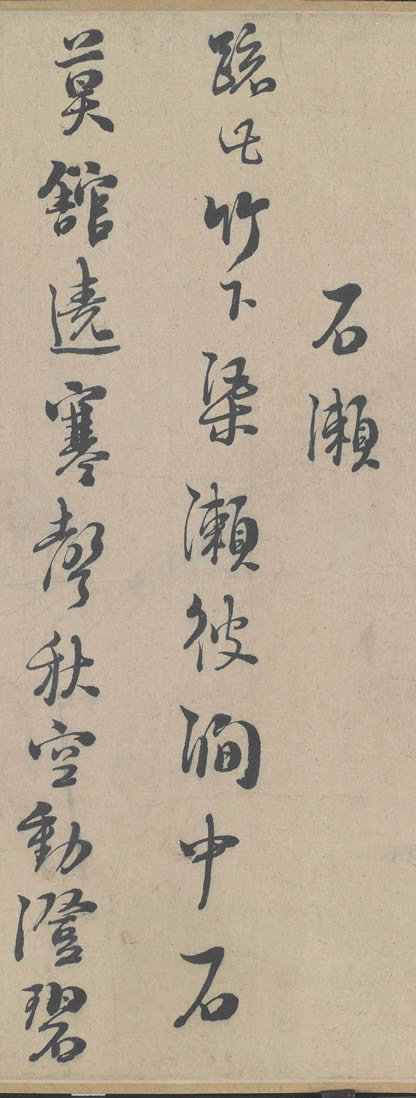 石瀨
踈此竹下渠瀨彼澗中石
莫館遶寒聲秋空動澄碧